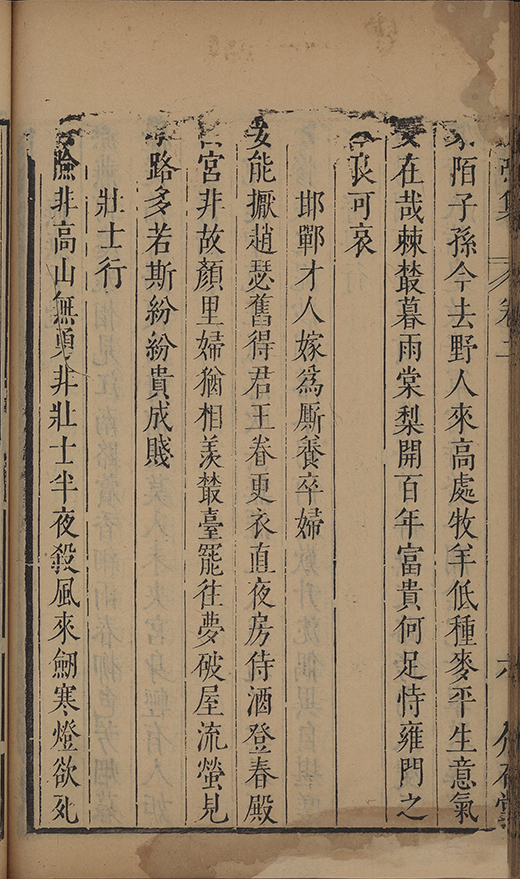 集 卷 六
陌子孫今去野人來高處牧羊低種麥平生意氣
安在哉棘叢暮雨棠梨開百年富貴何足恃雍門之
哀可哀
邯鄲才人嫁爲厮養卒婦
妾能擫趙瑟舊得君王眷更衣直夜房侍酒登春殿
宮非故顏里婦猶相羡叢臺罷往夢破屋流螢見
路多若斯紛紛貴成賤
壯士行
險非高山無勇非壯士半夜殺風來劒寒燈欲死